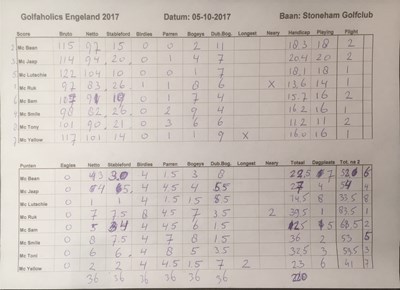 Golfaholics Engeland 2017 Datum: 05-10-2017 Baan: Stoneham Golfclub
Score Bruto Netto Stableford Birdies Parren Bogeys Dub.Bog. Longest Neary Handicap Playing Flight
Mc Baan 115 97 15 0 0 2 11 18.3 18 2
Mc Jaap 114 94 20 0 1 4 7 20.4 20 2
Mc Lutschie 122 104 10 0 0 7 18.1 18 1
Mc Ruk 97 83 26 1 1 8 6 X 13.6 14 1
Mc Sam 1 7 4 15.7 16 2
Mc Smile 98 82 26 0 2 9 4 16.2 16 1
Mc Tony 101 90 21 0 3 6 6 11.2 11 2
Mc Yellow 117 101 14 0 1 1 9 X 16.0 16 1
Punten Eagles Netto Stableford Birdies Parren Bogeys Dub.Bog. Longest Neary Totaal Dagplaats Tot. na 2
Mc Baan 0 4 1.5 3 8
Mc Jaap 0 4 4.5 4 5.5 4
Mc Lutschie 0 1 1 4 1.5 1.5 8.5 8
Mc Ruk 0 7 7.5 8 4.5 7 3.5 2 39.5 1 83.5 1
Mc Sam 0 4 4.5 6 1.5 2
Mc Smile 0 8 7.5 4 7 8 1.5 36 2 53 5
Mc Tony 0 6 6 4 8 5 3.5 32.5 3 3
Mc Yellow 0 2 2 4 4.5 1.5 7 2 23 6 41 7
36 36 36 36 36